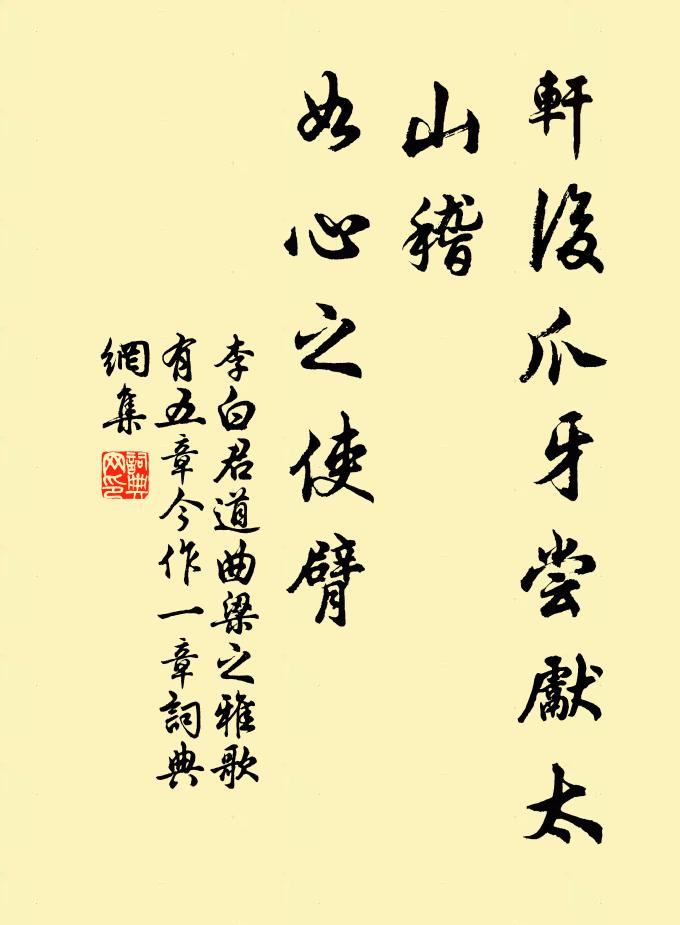 軒後爪牙嘗獻太
山稽
如心之使臂
李白君道曲梁之雅歌
有五章今作一章詞典
網集
詞典網印